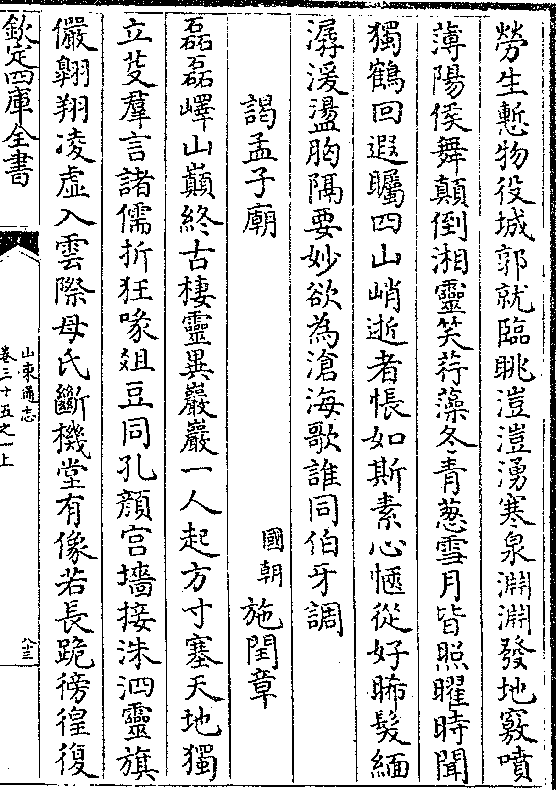 勞生慙物役城郭就臨眺溰溰湧寒泉淵淵發地竅噴
薄陽侯舞顛倒湘靈笑荇藻冬青葱雪月皆照曜時聞
獨鶴回遐矚四山峭逝者悵如斯素心愜從好晞髮緬
潺湲盪胸隔要妙欲為滄海歌誰同伯牙調
謁孟子廟
國朝 施閏章
磊磊嶧山巔終古棲靈異巖巖一人起方寸塞天地獨
立芟羣言諸儒折狂喙俎豆同孔顏宫墻接洙泗靈旗
儼翺翔凌虛入雲際母氏斷機堂有像若長跪徬徨復
欽定四庫全書
山東通志
卷三十五之一上